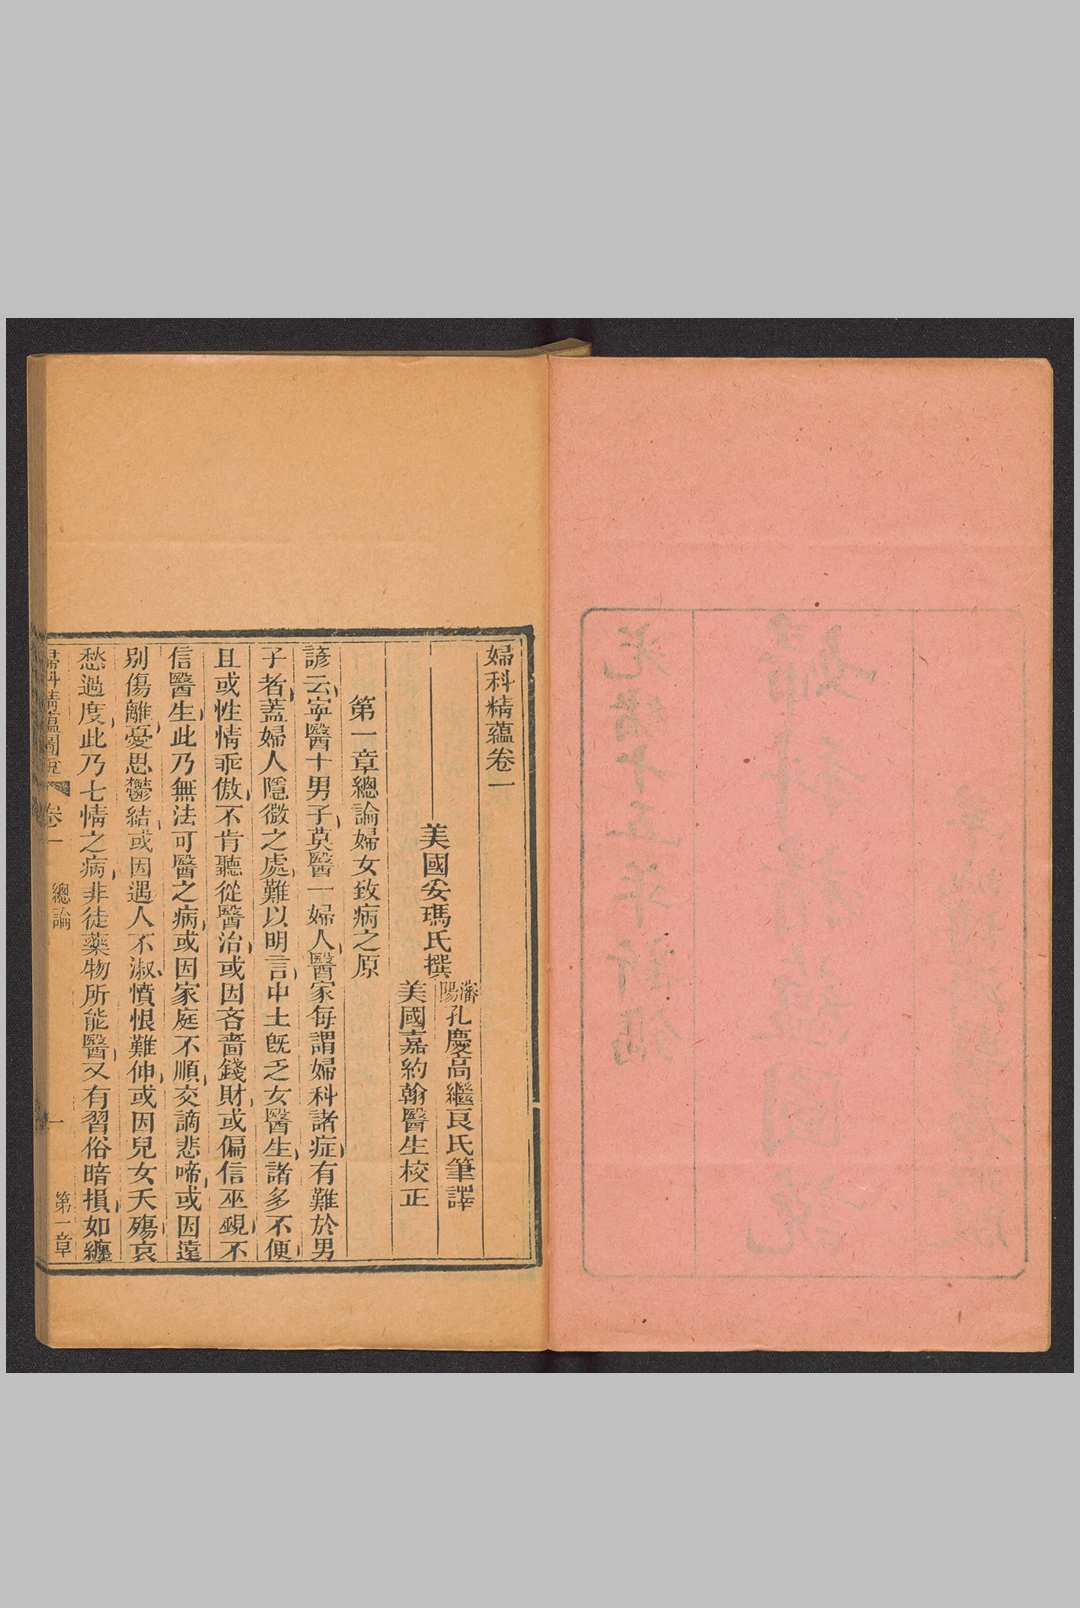 光緒十五年新鐫
婦科精蘊圖說
婦科精蘊卷一
美國妥瑪氏撰
瀋陽孔慶高繼良氏筆譯
美國嘉約翰醫生校正
第一章總論婦女致病之原
諺云寧醫十男子莫醫一婦人醫家每謂婦科諸症有難於男
子者蓋婦人隱微之處難以明言中土既乏女醫生諸多不便
且或性情乖傲不肯聽從醫治或因吝嗇錢財或偏信巫覡不
信醫生此乃無法可醫之病或因家庭不順交謫悲啼或因遠
别傷離憂思鬱結或因遇人不淑憤恨難伸或因兒女夭殤哀
愁過度此乃七情之病非徒藥物所能醫又有習俗暗損如纏
婦科精蘊圖說 卷一 總論 一 第一章